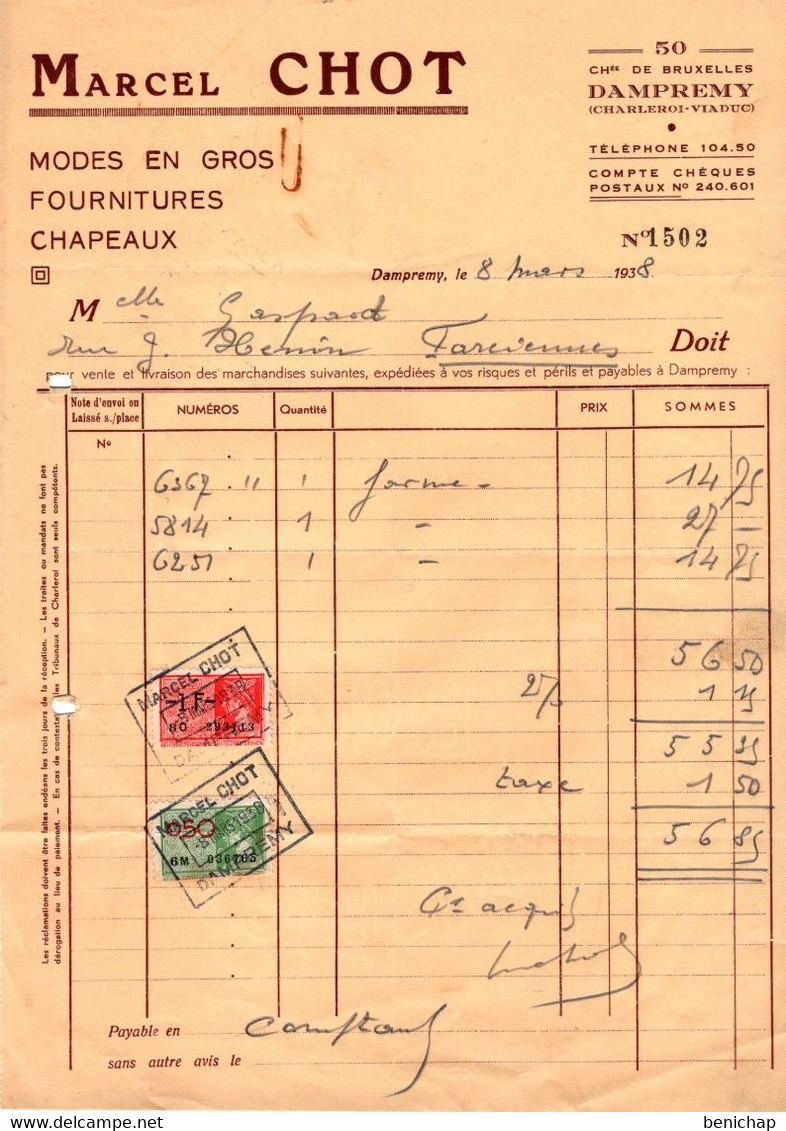 MARCEL CHOT
50
CHÉE DE BRUXELLES
DAMPREMY
(CHARLEROI-VIADUC)
TÉLÉPHONE 104.50
COMPTE CHÈQUES
POSTAUX No 240.601
MODES EN GROS
FOURNITURES
CHAPEAUX
No 1502
Dampremy, le 8 mars 1938.
Melle Gaspard
rue J. Henin Farciennes Doit
pour vente et livraison des marchandises suivantes, expédiées à vos risques et périls et payables à Dampremy :
Note d'envoi ou Laissé s./place NUMÉROS Quantité PRIX SOMMES
No
6367 " 1 forme - 14 75
5814 1 - 27 -
6251 1 - 14 75
56 50
2% 1 15
55 35
taxe 1 50
56 85
MARCEL CHOT
-1 F-
8 MARS 1938
8O 293113
MARCEL CHOT
0.50
8 MARS 1938
6M 036765
DAMPREMY
Payable en comptant
sans autre avis le
Les réclamations doivent être faites endéans les trois jours de la réception. — Les traites ou mandats ne font pas
dérogation au lieu de paiement. — En cas de contestation les Tribunaux de Charleroi sont seuls compétents.
delcampe.net
benichap